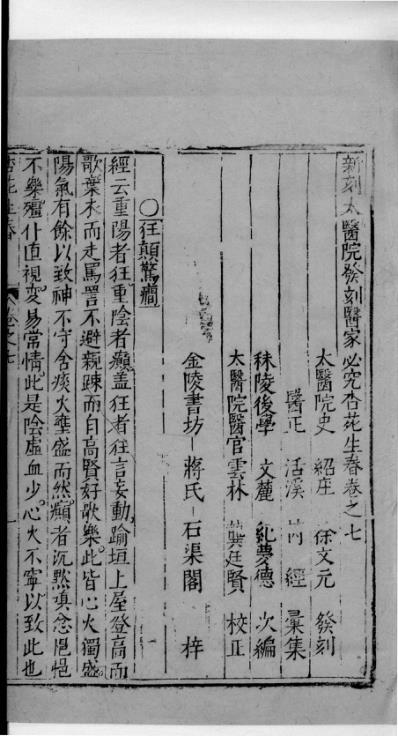 新刻太醫院發刻醫家必究杏花生春卷之七
太醫院史 紹庄 徐文元 發刻
醫正 活溪 芮 經 彙集
秣陵後學 文麓 紀夢德 次編
太醫院醫官雲林 龔廷賢 校正
金陵書坊 蔣氏 石渠閣 梓
○狂顛驚癇
經云重陽者狂重陰者癲盖狂者狂言妄動踰垣上屋登高而
歌葉衣而走罵詈不避親踈而自高賢好歌樂此皆心火獨盛
陽氣有餘以致神不守舍痰火壅盛而然癲者沉黙嗔念悒悒
不樂殭仆直視变易常情此是陰虛血少心火不寧以致此也
杏花生春 卷之七 一